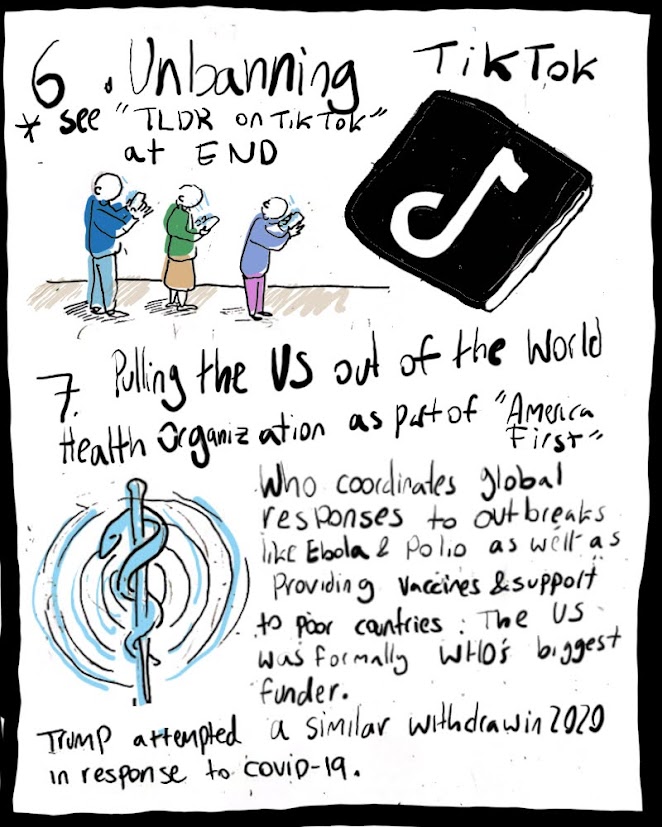 6. Unbanning TikTok
* see "TLDR on TikTok"
at END
7. Pulling the US out of the World
Health Organization as part of "America
First"
Who coordinates global
responses to outbreaks
like Ebola & Polio as well as
Providing vaccines & support
to poor countries. The US
was formally WHO's biggest
funder.
Trump attempted a similar withdraw in 2020
in response to covid-19.